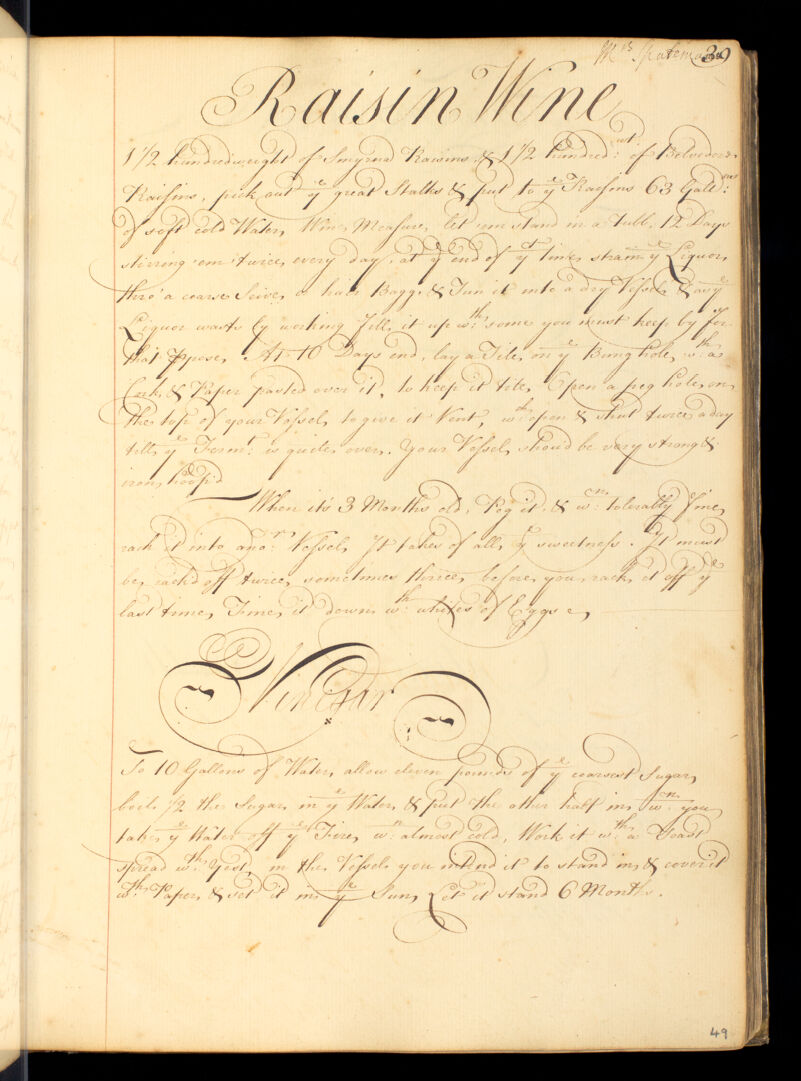 Mrs. 39
Raisin Wine
1 1/2 hundredweight of Smyrna Raisins & 1 1/2 hundred: wt. of Belvedere
Raisins, pick out ye great Stalks & put to ye Raisins 63 Gall:ons
of soft cold Water, Wine Measure, let 'em stand in a tubb, 12 Days
stirring 'em twice every day, at ye end of yt time strain ye Liquor
thro' a coarse Seive, or hair Bagg, & Tun it into a dry Vessel, & as ye
Liquor wasts by working Fill it up wth: some you must keep by for
that Ppose, At 10 Days end, lay a Tile, on ye Bung hole, wth: a
Cork & Paper pasted over it, to keep it tite, Open a peg hole, on
the top of your Vessel, to give it Vent, open & shut twice a day
till, ye Fermt: is quite over. Your Vessel, shou'd be very strong &
iron hoop'd
When it's 3 Months old, Peg it, & wn: tolerably fine,
rack it into anor: Vessel, It takes of all, ye sweetness. It must
be, rack'd off twice, sometimes thrice, before you, rack, it off ye
last time, Fine, it down, wth: whites of Eggs
Vinegar
To 10 Gallons of Water, allow eleven pounds of ye coarsest Sugar,
boil 1/2 the Sugar, in ye Water, & put the other half in, wn: you
take, ye Water off ye Fire, wn: almost cold, Work it wth: a Toast
spread wth: Yest, in the Vessel, you intend it to stand in, & cover it
wth: Paper, & set it in, ye Sun, Let it stand 6 Months.
49